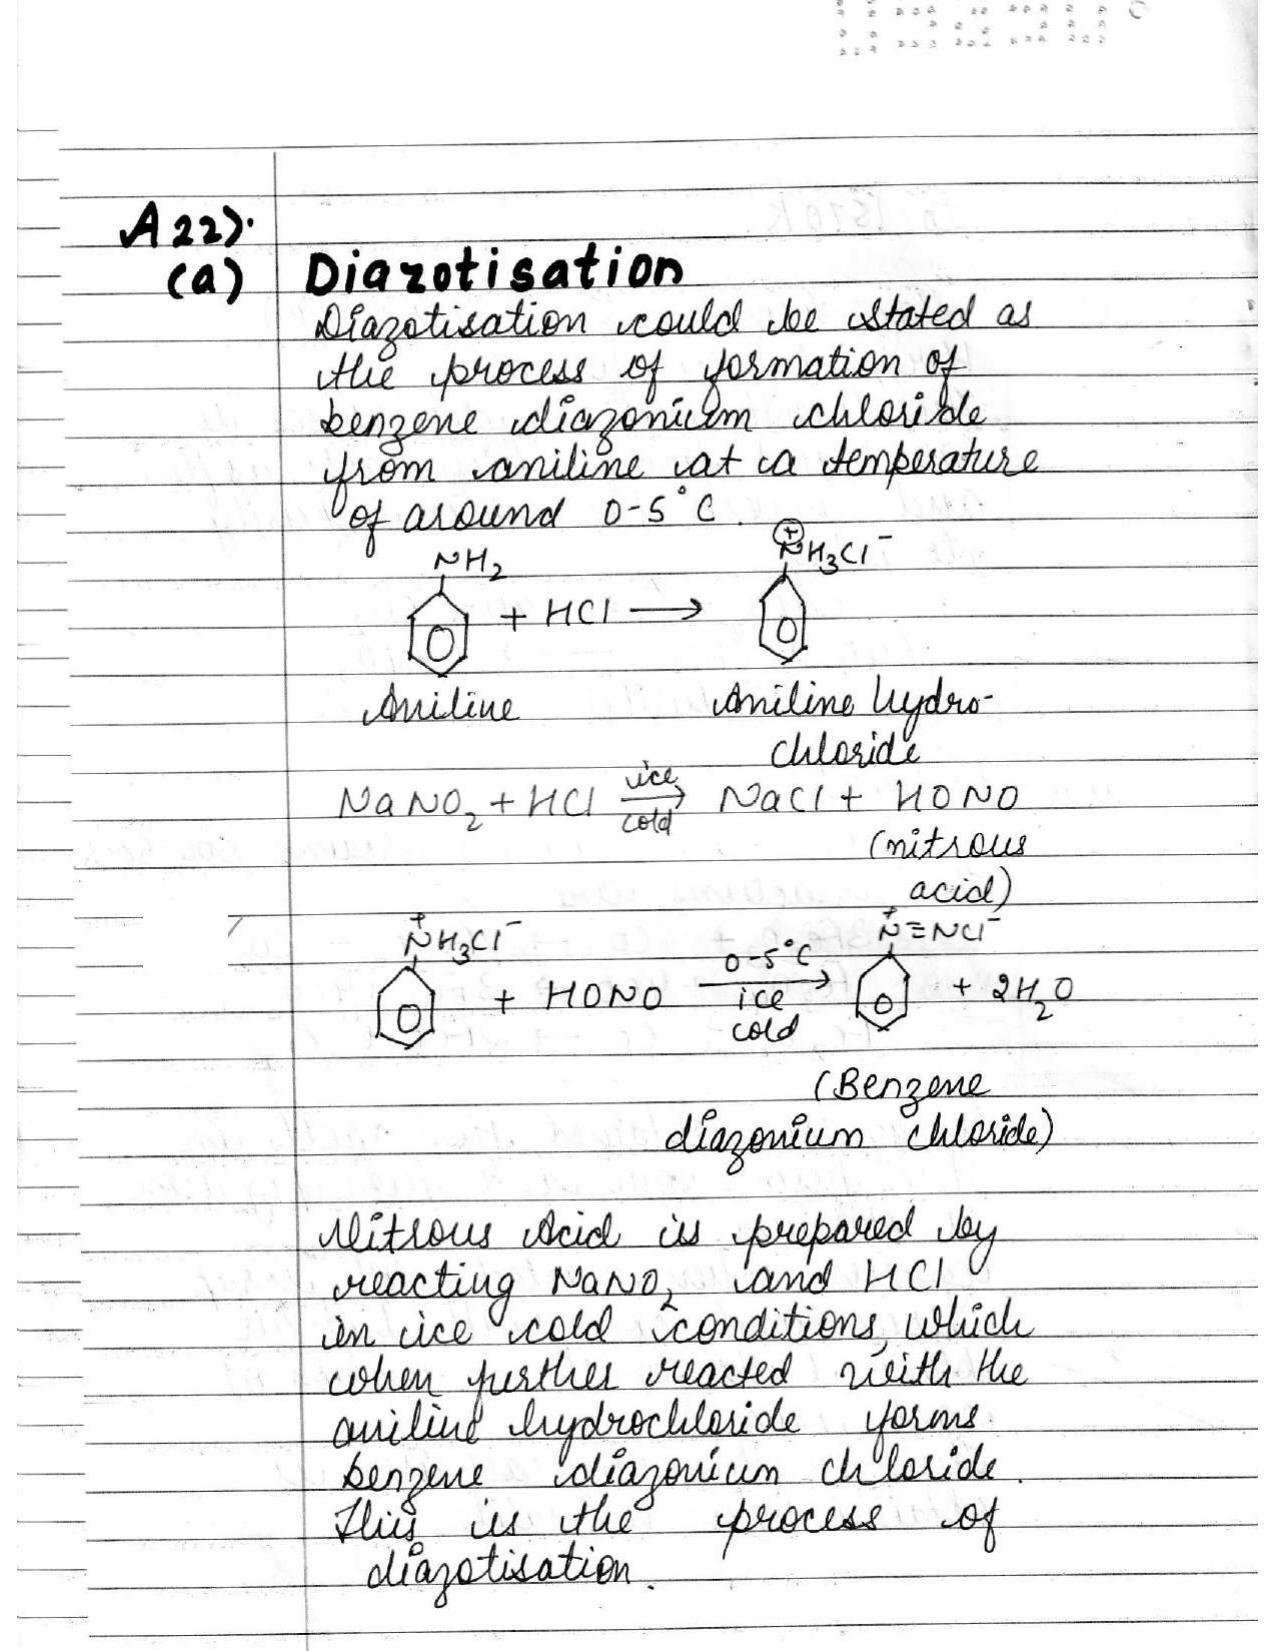 A22).
(a) Diazotisation
Diazotisation could be stated as
the process of formation of
benzene diazonium chloride
from aniline at a temperature
of around 0-5°C.
NH₂ ⊕NH₃Cl⁻
+ HCl ⟶
Aniline Aniline hydro-
chloride
NaNO₂ + HCl ice cold → NaCl + HONO
(nitrous
acid)
⁺NH₃Cl⁻ ⁺N≡NCl⁻
+ HONO 0-5°C ice cold → + 2H₂O
(Benzene
diazonium chloride)
Nitrous Acid is prepared by
reacting NaNO₂ and HCl
in ice cold conditions, which
when further reacted with the
aniline hydrochloride forms
benzene diazonium chloride.
This is the process of
diazotisation.